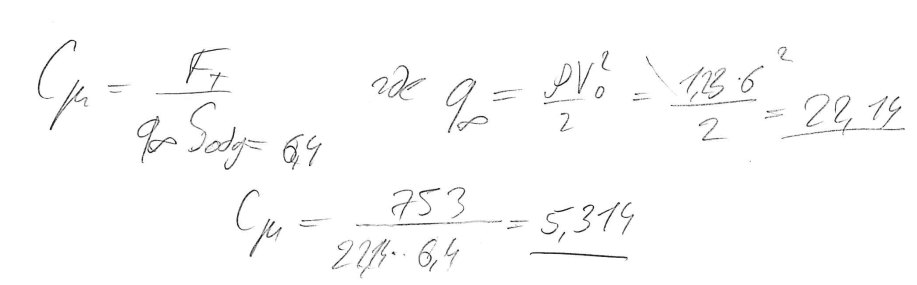 Cμ = F_T / (q∞ S обд = 6,4) где q∞ = ρV₀² / 2 = 1,23·6² / 2 = 22,14
Cμ = 753 / (22,14 · 6,4) = 5,314